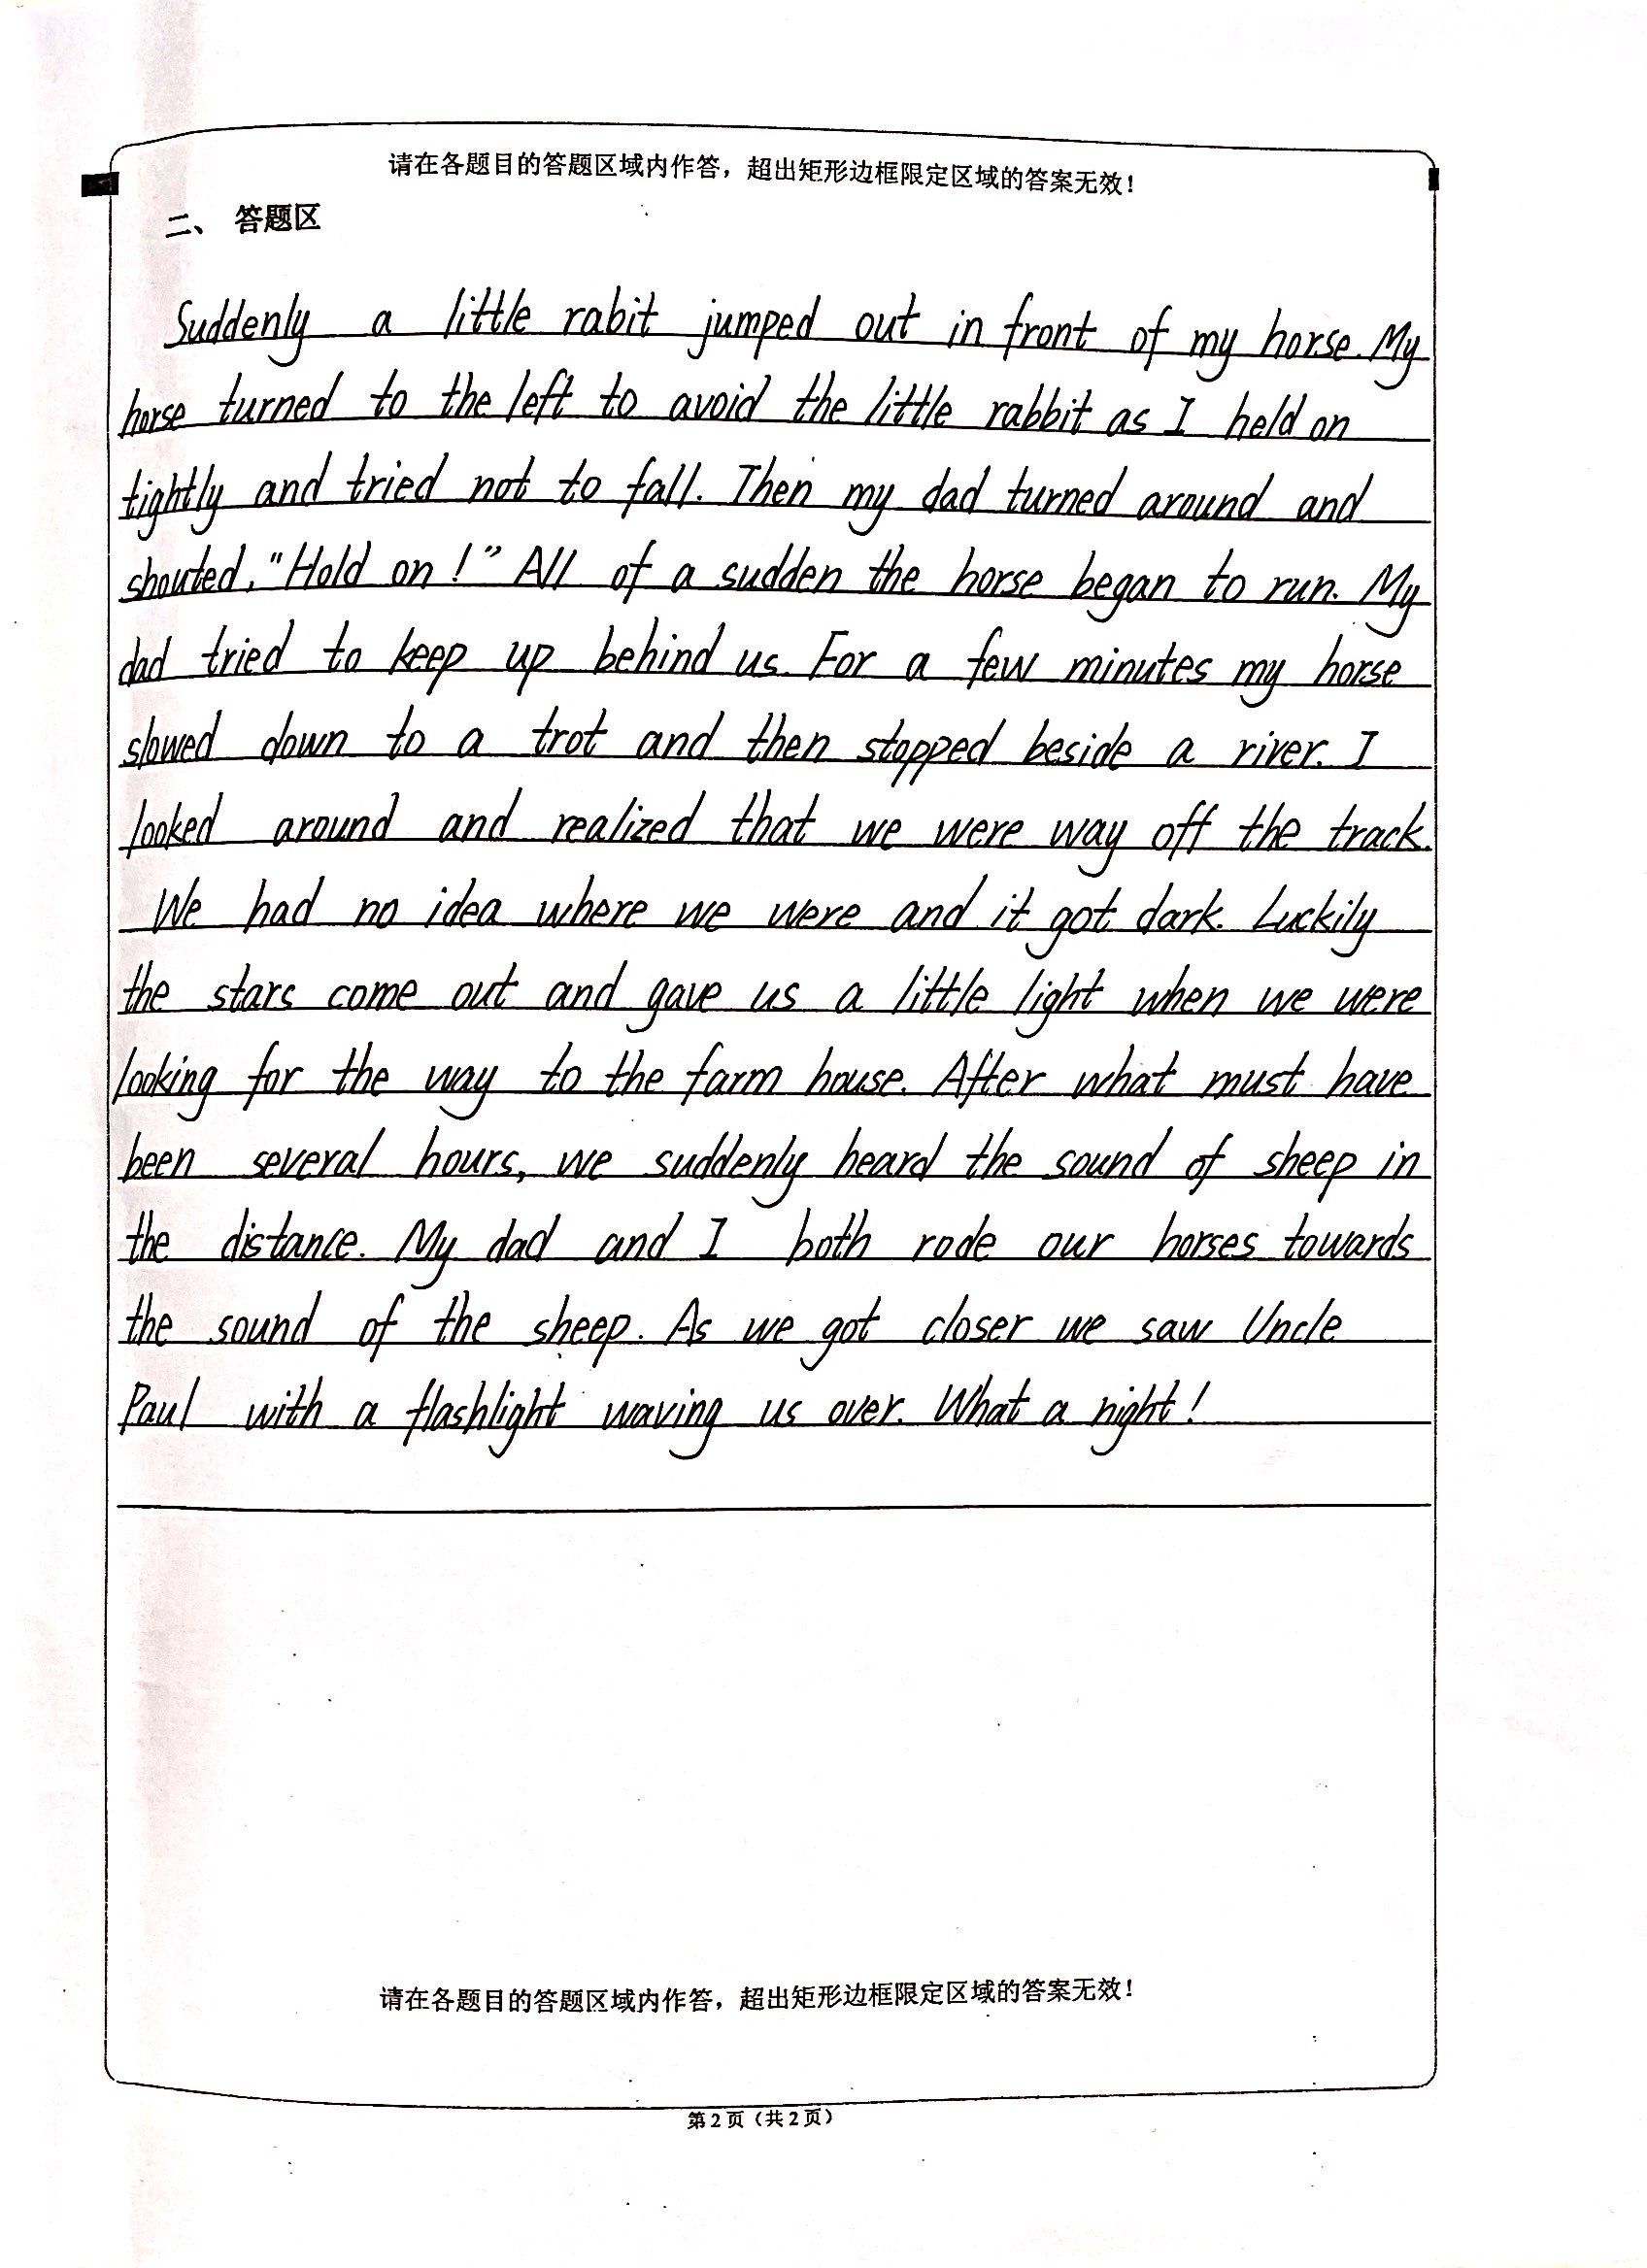 请在各题目的答题区域内作答，超出矩形边框限定区域的答案无效！
二、 答题区
Suddenly a little rabit jumped out in front of my horse. My
horse turned to the left to avoid the little rabbit as I held on
tightly and tried not to fall. Then my dad turned around and
shouted, "Hold on!" All of a sudden the horse began to run. My
dad tried to keep up behind us. For a few minutes my horse
slowed down to a trot and then stopped beside a river. I
looked around and realized that we were way off the track.
We had no idea where we were and it got dark. Luckily
the stars come out and gave us a little light when we were
looking for the way to the farm house. After what must have
been several hours, we suddenly heard the sound of sheep in
the distance. My dad and I both rode our horses towards
the sound of the sheep. As we got closer we saw Uncle
Paul with a flashlight waving us over. What a night!
请在各题目的答题区域内作答，超出矩形边框限定区域的答案无效！
第2页（共2页）